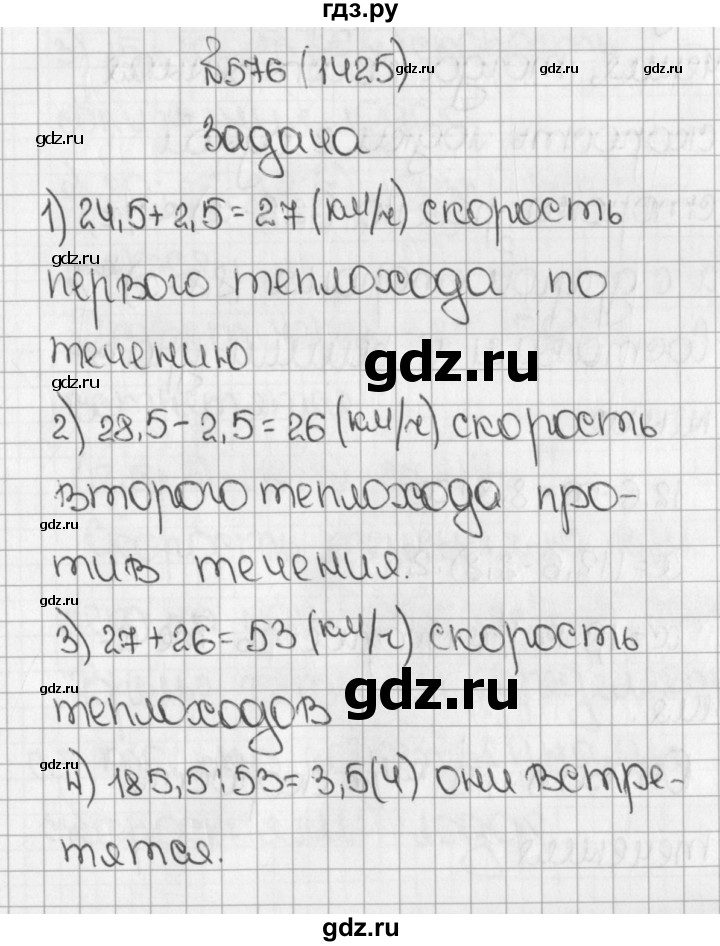 гдз.ру
№576 (1425)
gdz.ru
gdz.ru
gdz.ru
Задача
1) 24,5 + 2,5 = 27 (км/ч) скорость
gdz.ru
gdz.ru
gdz.ru
первого теплохода по
течению
gdz.ru
2) 28,5 - 2,5 = 26 (км/ч) скорость
второго теплохода про-
gdz.ru
тив течения.
gdz.ru
3) 27 + 26 = 53 (км/ч) скорость
gdz.ru
gdz.ru
теплоходов
4) 185,5 : 53 = 3,5 (ч) они встре-
тятся.
gdz.ru